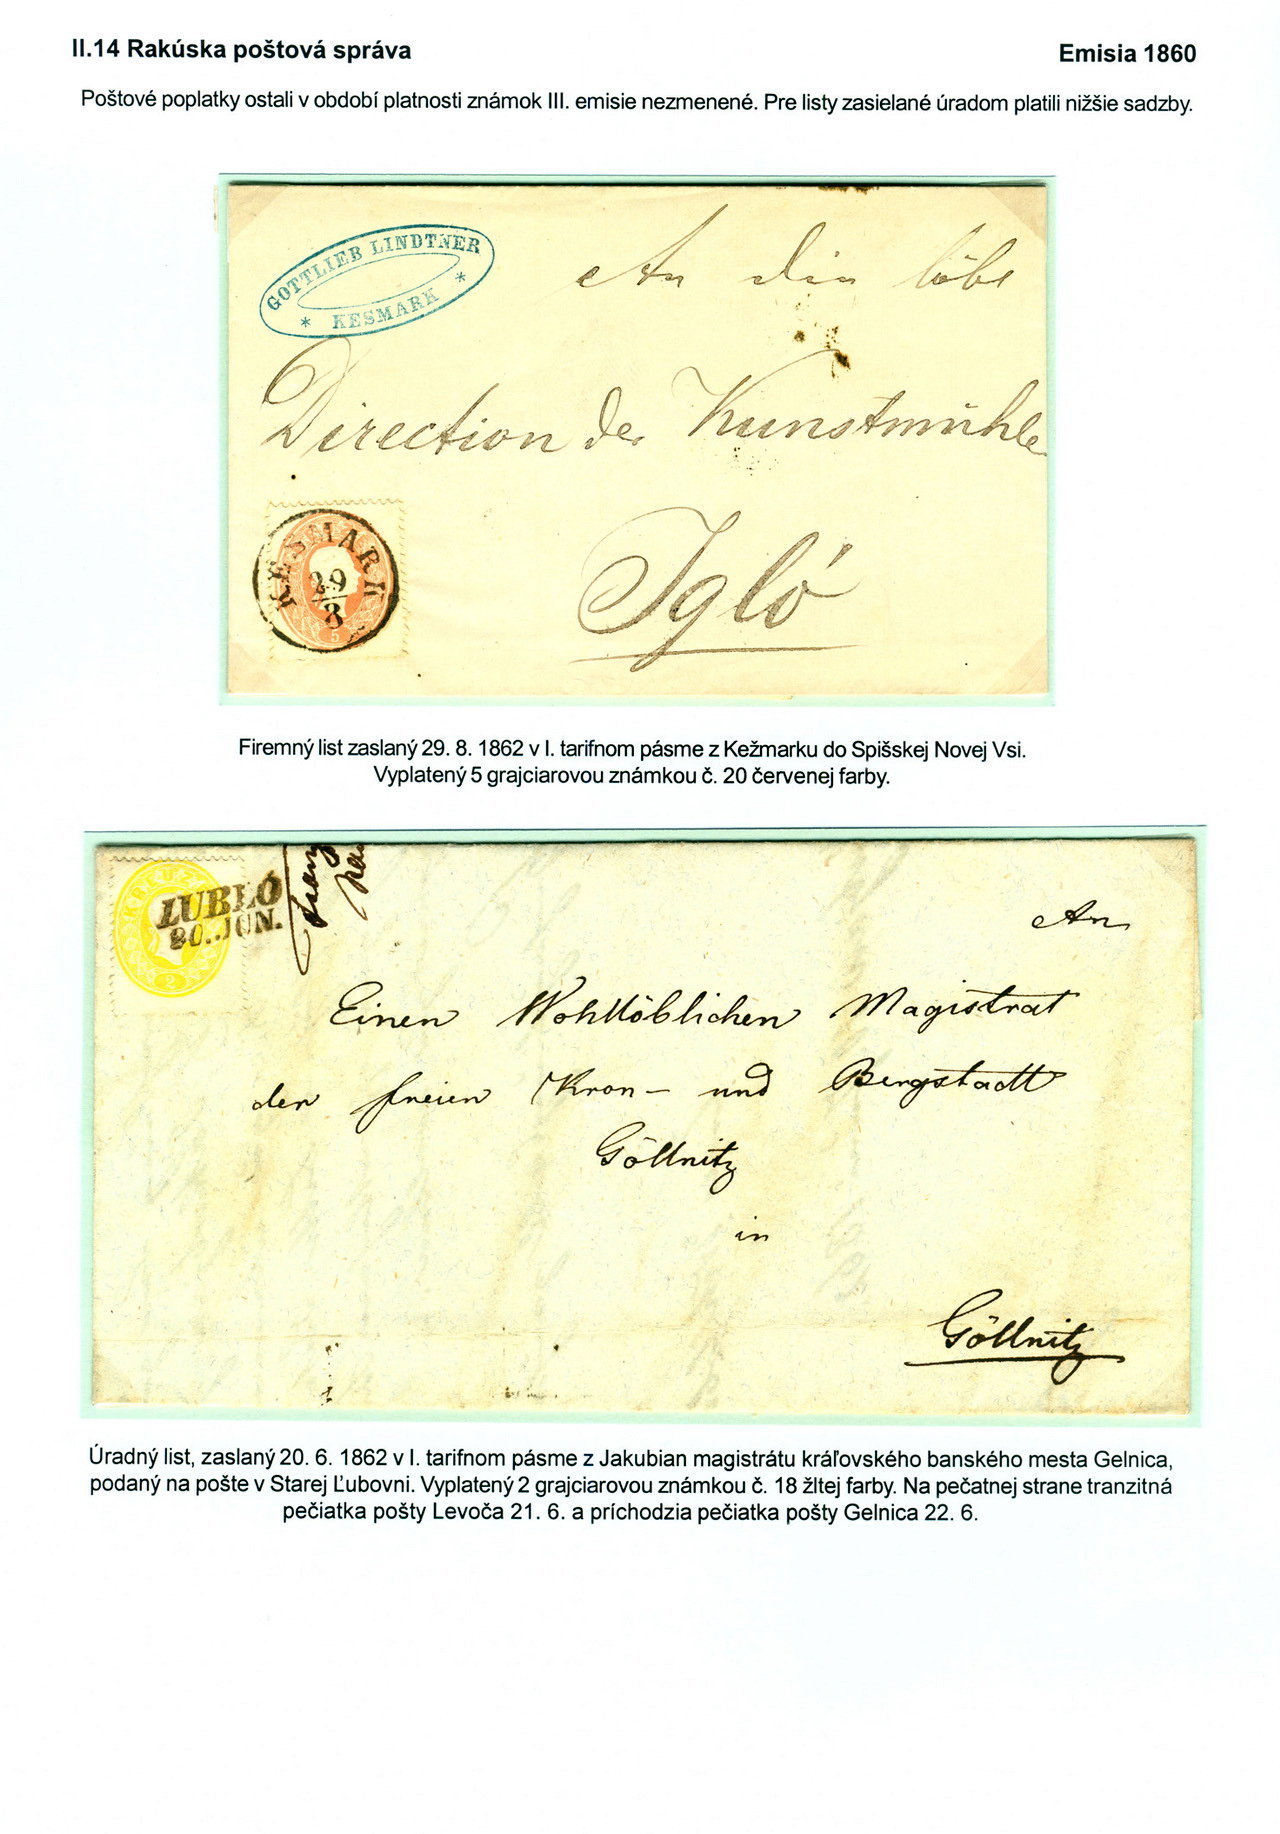 II.14 Rakúska poštová správa
Emisia 1860
Poštové poplatky ostali v období platnosti známok III. emisie nezmenené. Pre listy zasielané úradom platili nižšie sadzby.
GOTTLIEB LINDTNER
* KESMARK *
An die löbl
Direction der Kunstmühle
KESMARK
29
8
5
Igló
Firemný list zaslaný 29. 8. 1862 v I. tarifnom pásme z Kežmarku do Spišskej Novej Vsi.
Vyplatený 5 grajciarovou známkou č. 20 červenej farby.
KREUZ
LUBLÓ
20. JUN.
2
An
Einen Wohllöblichen Magistrat
der freien Kron- und Bergstadt
Göllnitz
in
Göllnitz
Úradný list, zaslaný 20. 6. 1862 v I. tarifnom pásme z Jakubian magistrátu kráľovského banského mesta Gelnica,
podaný na pošte v Starej Ľubovni. Vyplatený 2 grajciarovou známkou č. 18 žltej farby. Na pečatnej strane tranzitná
pečiatka pošty Levoča 21. 6. a príchodzia pečiatka pošty Gelnica 22. 6.